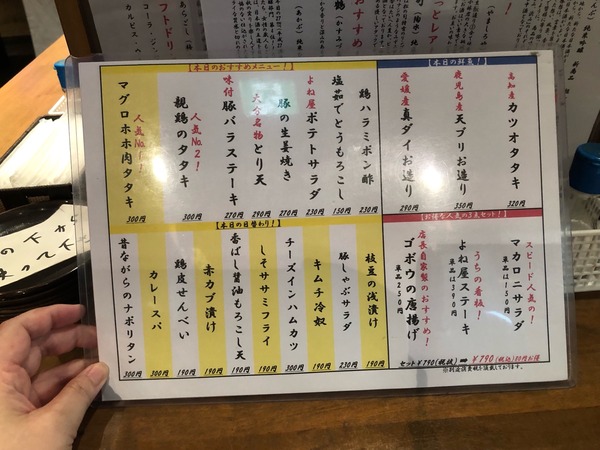 【本日のおすすめメニュー！】
鶏ハラミポン酢
230円
塩茹でとうもろこし
150円
よね屋ポテトサラダ
230円
豚の生姜焼き
270円
大分名物とり天
290円
味付豚バラステーキ
270円
人気No.2！
親鶏のタタキ
300円
人気No.1！
マグロホホ肉タタキ
300円
【本日の鮮魚！】
高知産カツオタタキ
320円
鹿児島産天ブリお造り
350円
愛媛産真ダイお造り
290円
【本日の日替わり！】
枝豆の浅漬け
190円
豚しゃぶサラダ
230円
キムチ冷奴
190円
チーズインハムカツ
300円
しそササミフライ
190円
香ばし醤油もろこし天
190円
赤カブ漬け
190円
鶏皮せんべい
190円
カレースパ
300円
昔ながらのナポリタン
300円
【お得な人気の3点セット！】
スピード人気の！
マカロニサラダ
単品は150円
うちの看板！
よね屋ステーキ
単品は390円
店長自家製のおすすめ！
ゴボウの唐揚げ
単品250円
セット¥790(税抜)
¥790
※別途消費税を頂戴しております。
フトドリ
コーラ・ジ
カルピス・
おすすめ